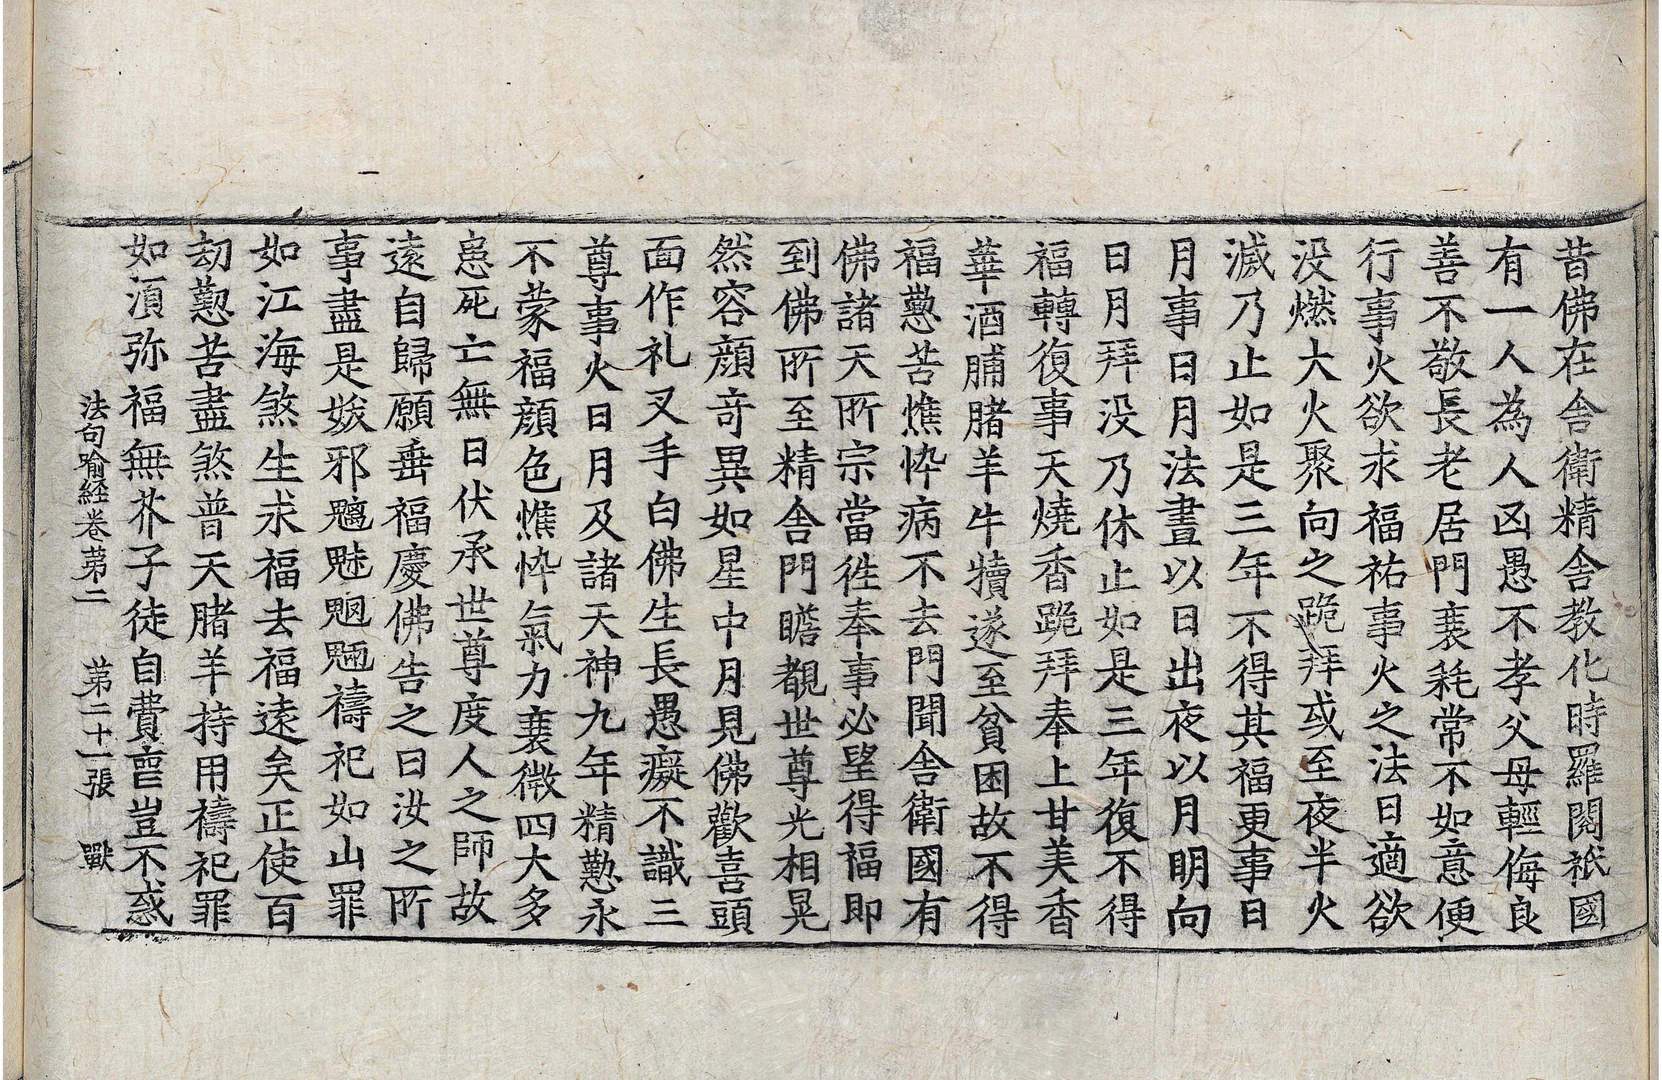 昔佛在舍衛精舍教化時羅閱祇國
有一人為人凶愚不孝父母輕侮良
善不敬長老居門衰耗常不如意便
行事火欲求福祐事火之法日適欲
没燃大火聚向之跪拜或至夜半火
滅乃止如是三年不得其福更事日
月事日月法晝以日出夜以月明向
日月拜没乃休止如是三年復不得
福轉復事天燒香跪拜奉上甘美香
華酒脯腤羊牛犢遂至貧困故不得
福懃苦憔悴病不去門聞舍衛國有
佛諸天所宗當徃奉事必望得福即
到佛所至精舍門瞻覩世尊光相晃
然容顔竒異如星中月見佛歡喜頭
面作礼叉手白佛生長愚癡不識三
尊事火日月及諸天神九年精懃永
不蒙福顔色憔悴氣力衰微四大多
患死亡無日伏承世尊度人之師故
遠自歸願垂福慶佛告之曰汝之所
事盡是妖邪魑魅魍魎禱祀如山罪
如江海煞生求福去福遠矣正使百
劫懃苦盡煞普天腤羊持用禱祀罪
如湏弥福無芥子徒自費喪豈不惑
法句喻経卷苐二　苐二十一張　獸